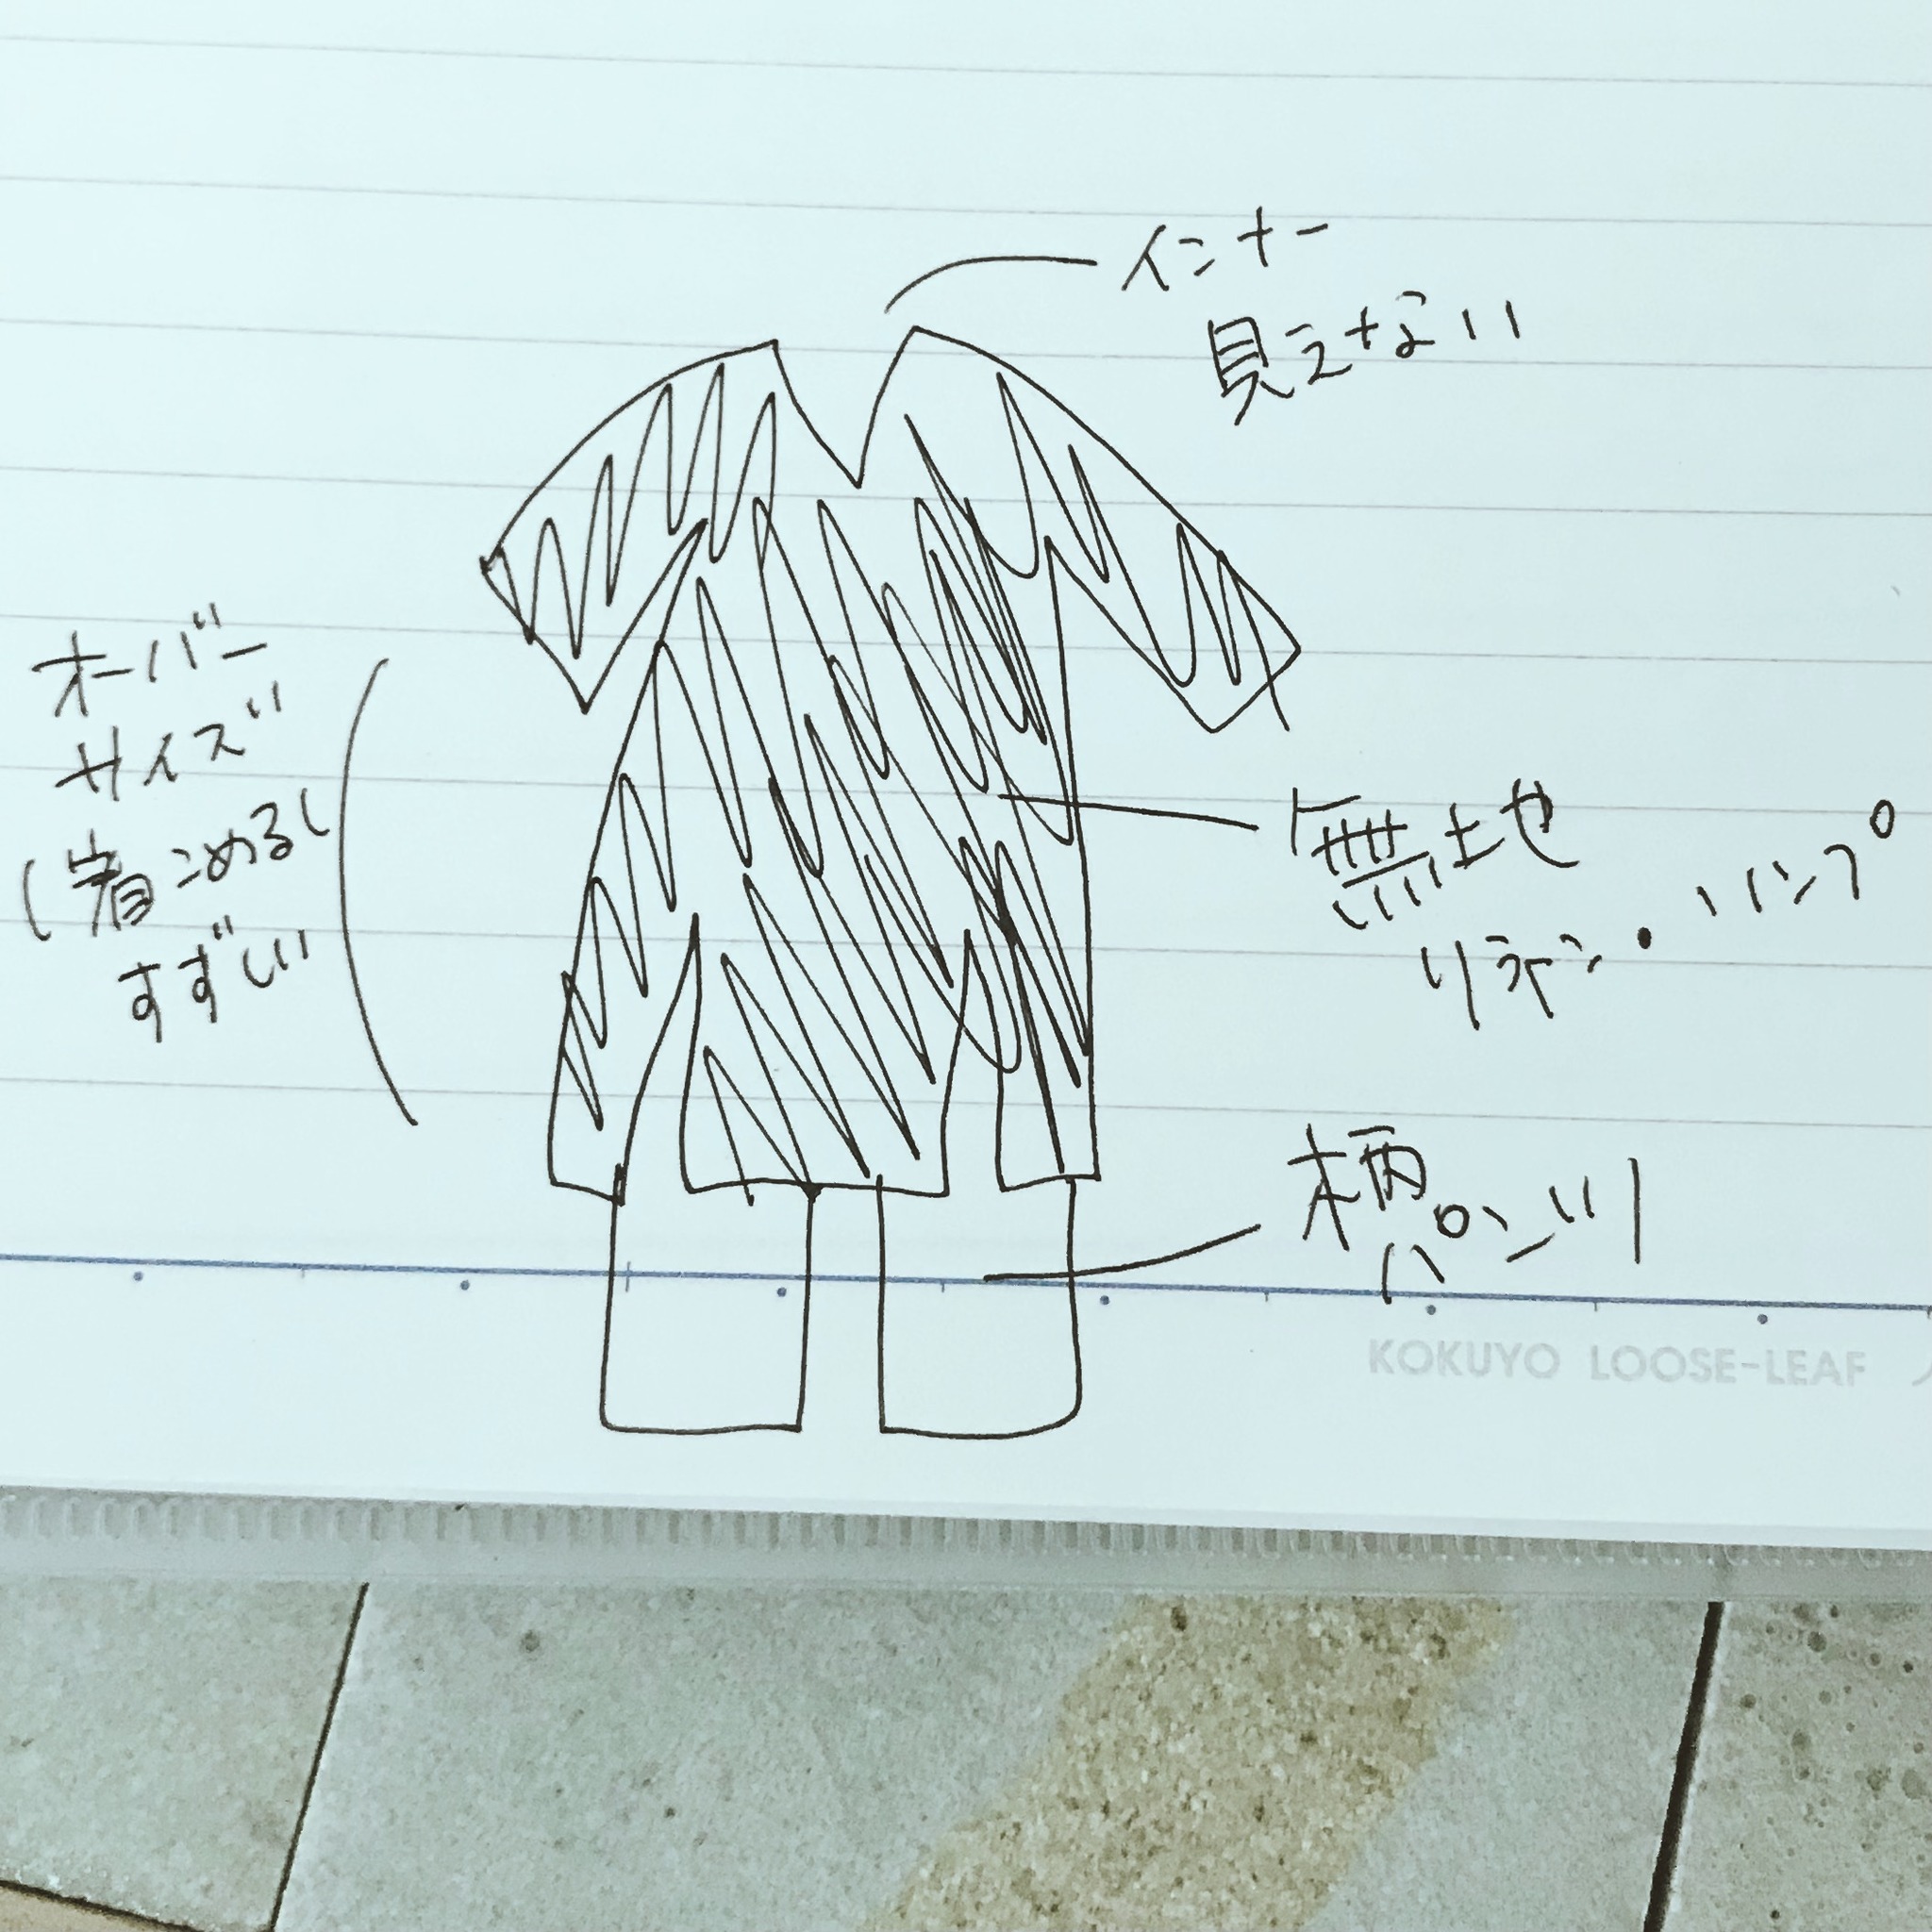 インナー
見えない
オーバー
サイズ
(着こめるし
すずしい
無地
リネン・ヘンプ
柄
パンツ
KOKUYO LOOSE-LEAF